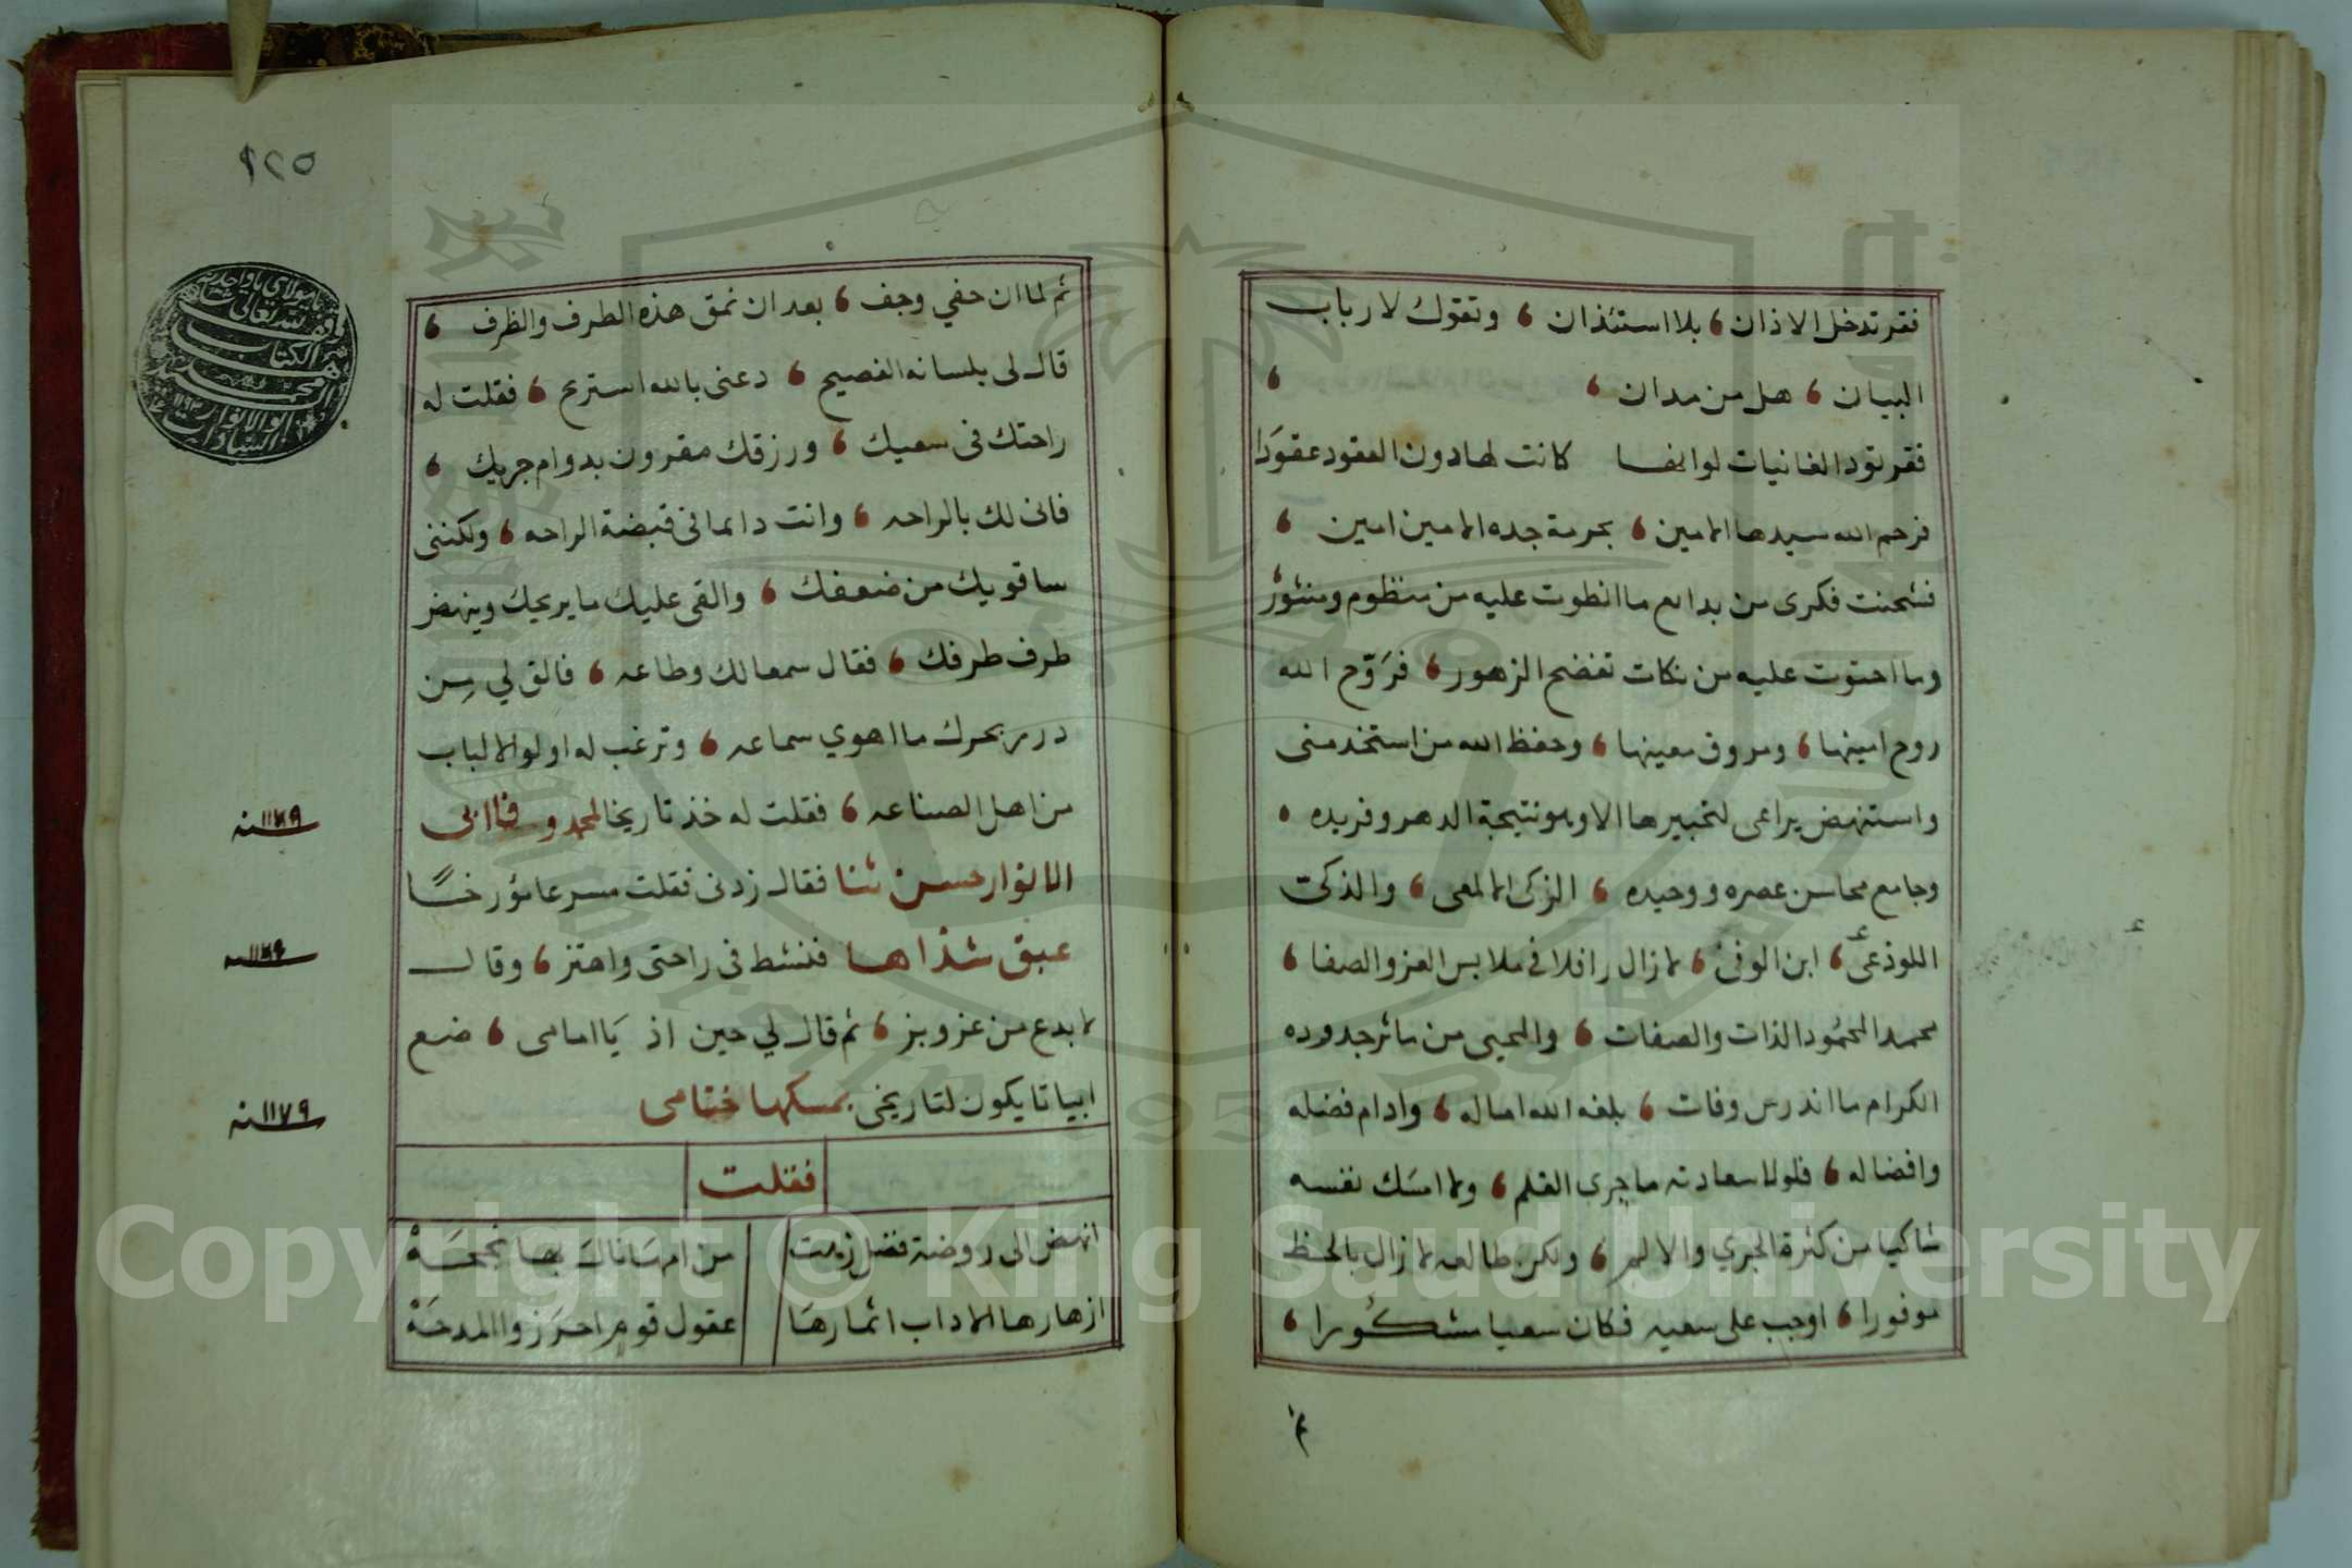 فقر تدخل الاذان بلا استئذان وتقول لارباب
البيان هل من مدان
فقر تود الغانيات لوانها كانت لها دون العقود عقودا
فرحم الله سيدها الامين بحرمة جده الامين امين
فشحنت فكرى من بدايع ما انطوت عليه من منظوم ومنثور
وما احتوت عليه من نكات تفضح الزهور فروّح الله
روح امينها وروق معينها وحفظ الله من استخدمنى
واستنهض يراعى لتحبيرها الا وهو نتيجة الدهر وفريده
وجامع محاسن عصره ووحيده الزكى الالمعى والذكى
اللوذعى ابن الوفى لازال رافلا في ملابس العز والصفا
محمد المحمود الذات والصفات والمحيى من ماثر جدوده
الكرام ما اندرس وفات بلغه الله اماله وادام فضله
وافضاله فلولا سعادته ما جرى القلم ولا امسك نفسه
شاكيا من كثرة الجري والالم ولكن طالعه لازال بالحظ
موفورا اوجب على سعيه فكان سعيا مشكورا
ثم
١٢٥
ثم لما ان حفي وجف بعد ان نمق هذه الطرف والظرف
قال لى بلسانه الفصيح دعنى بالله استريح فقلت له
راحتك فى سعيك ورزقك مقرون بدوام جريك
فانى لك بالراحه وانت دايما فى قبضة الراحه ولكننى
ساقويك من ضعفك والقى عليك ما يريحك وينهض
طرف طرفك فقال سمعا لك وطاعه فالق لي من
درر بحرك ما اهوي سماعه وترغب له اولو الالباب
من اهل الصناعه فقلت له خذ تاريخا لمحمد وفا ابى
سنه ١١٧٩
الانوار حسن ثنا فقال زدنى فقلت مسرعا مؤرخا
عبق شذاها فنشط فى راحتى واهتز وقال
سنه ١١٧٩
لابدع من عز وبز ثم قال لي حين اذ يا امامى ضع
ابياتا يكون لتاريخى بمسكها ختامى
سنه ١١٧٩
فقلت
انهض الى روضة فضل زهت من امها نال بها نجحه
ازهارها الاداب اثمارها عقول قوم احرزوا المدحه
Copyright © King Saud University